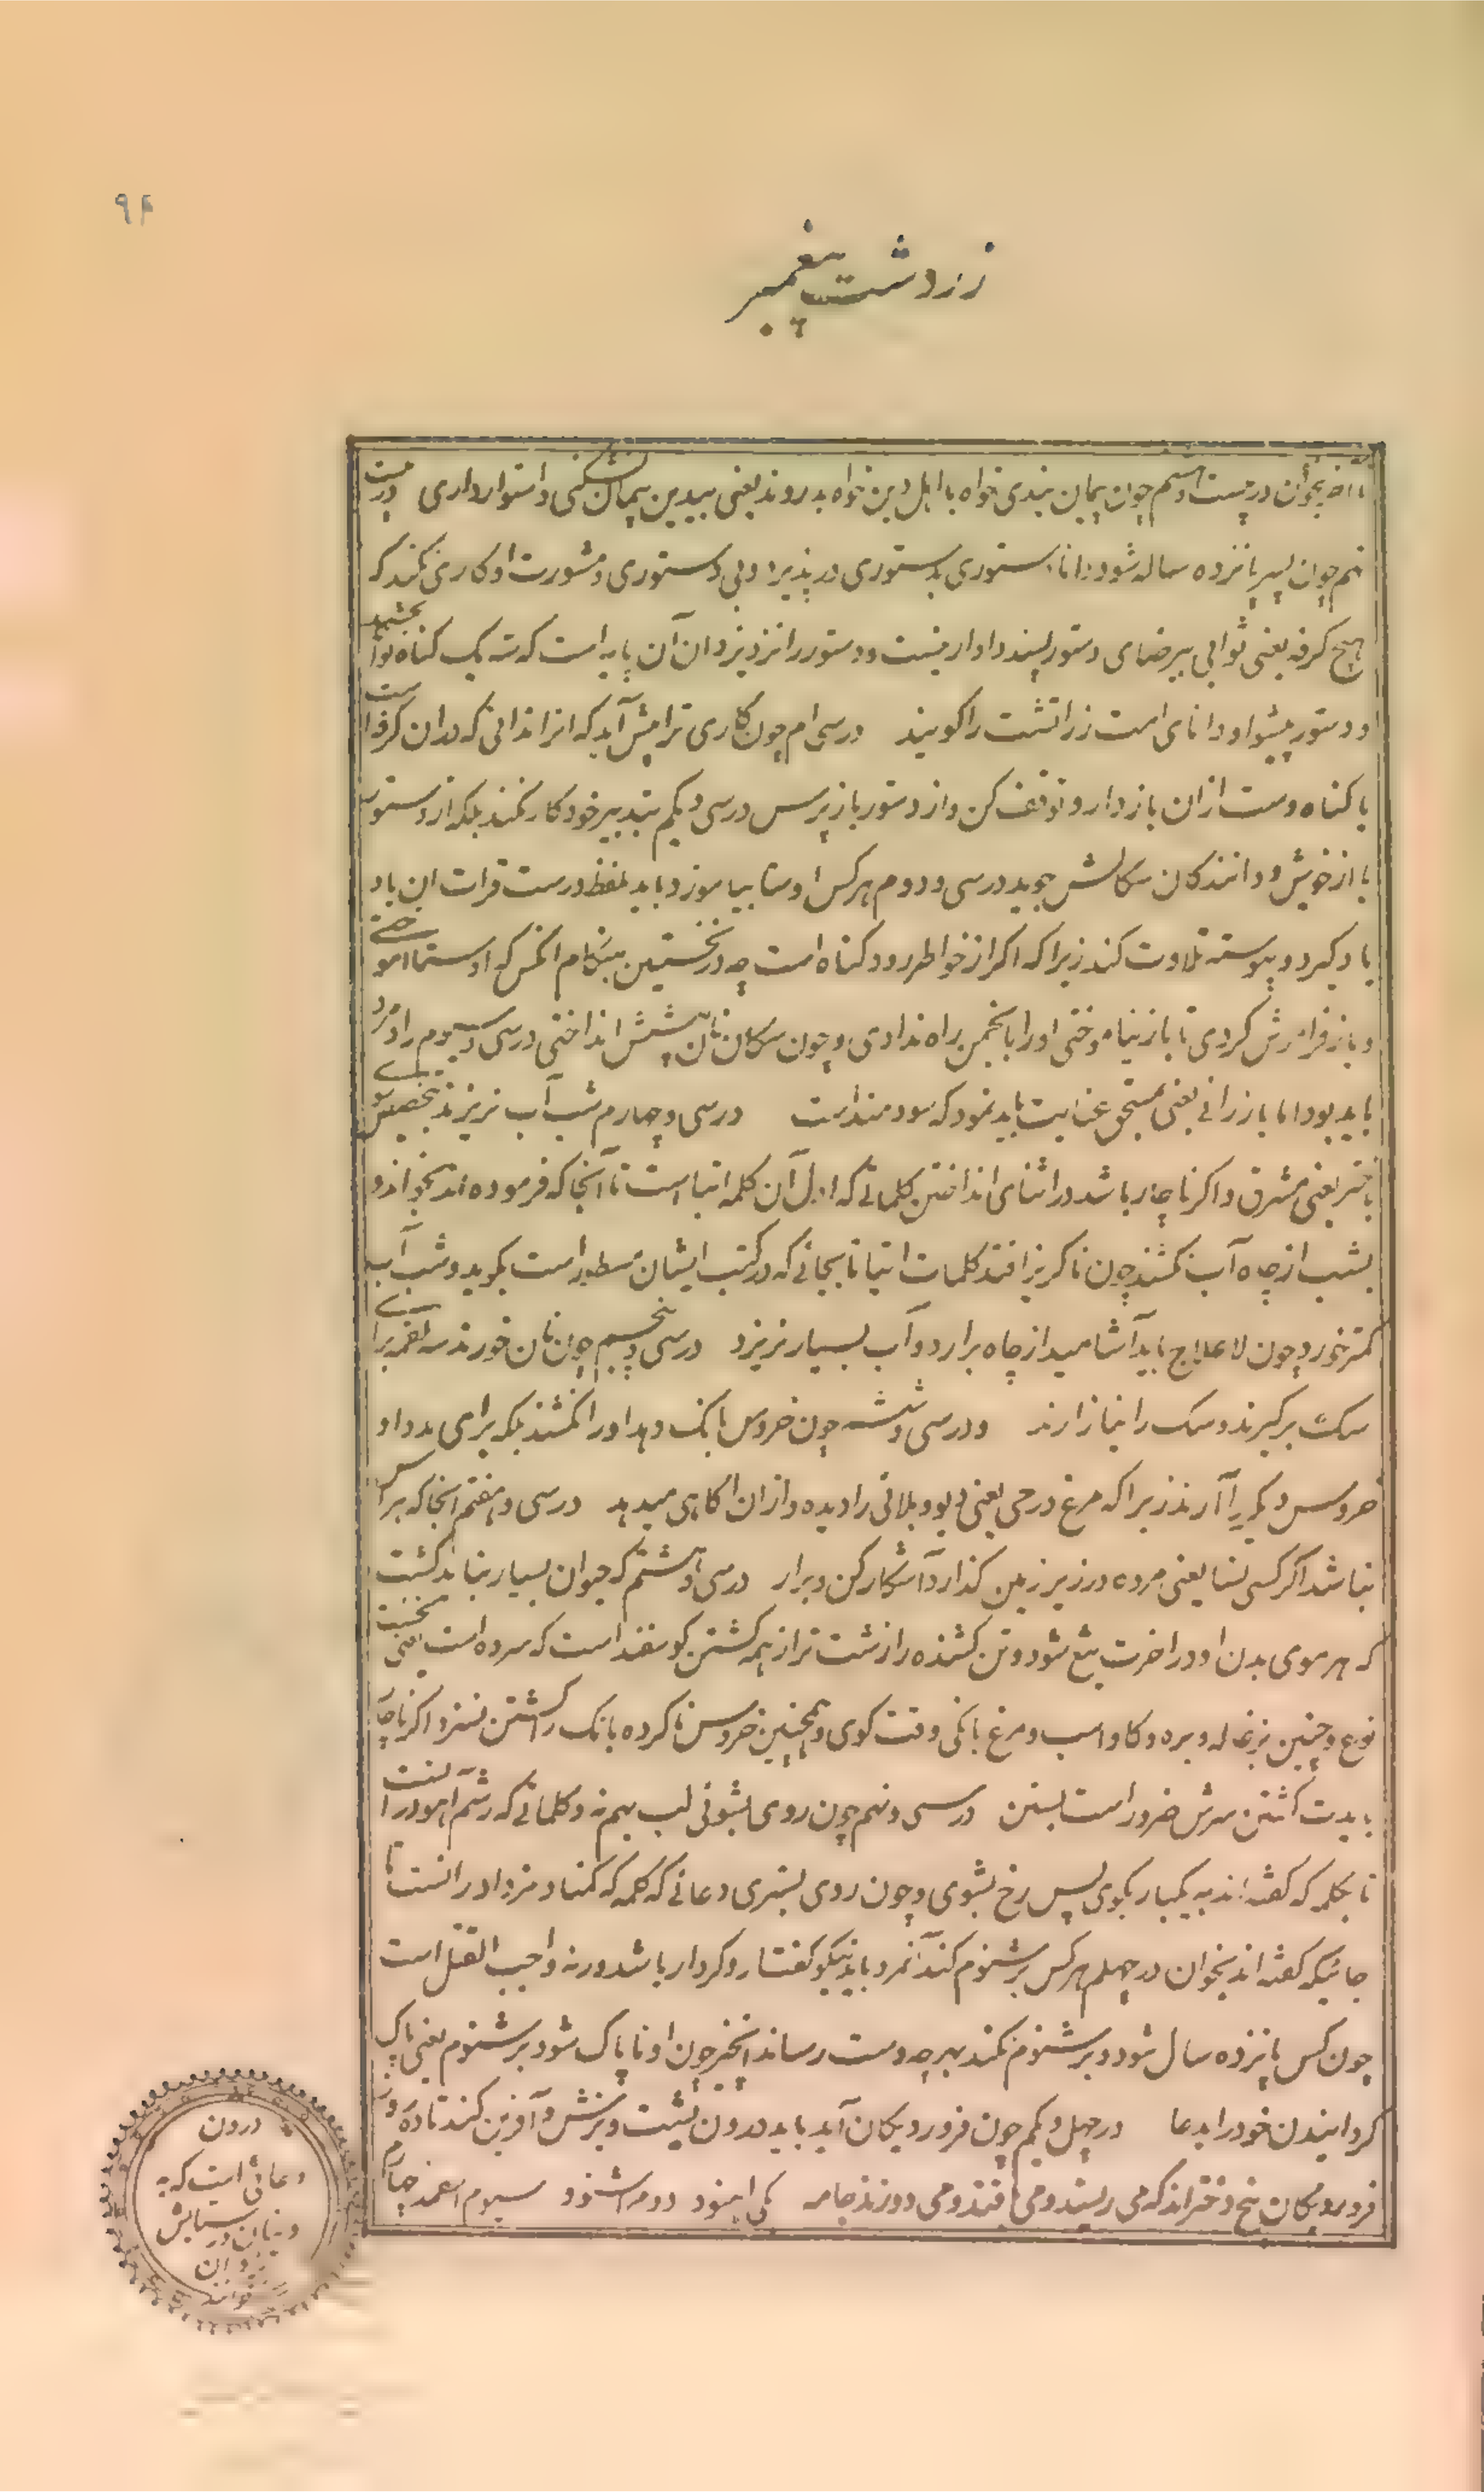 ۹۴
زردشت پیغمبر
تا آخر بخوان در بیست و هشتم چون پیمان بندی خواه با اهل دین خواه بدروند یعنی بیدین پیمان نشکنی و استوار داری در بیست
نهم چون پسر پانزده ساله شود دانا دستوری بدستوری در پذیرد و بی دستوری و مشورت او کاری نکند که
هیچ کرفه یعنی ثوابی بیرضای دستور پسند دادار نیست و دستور را نزد یزدان آن پایه است که سه یک کناه تواند بخشید
و دستور پیشوا و دانای امت زراتشت را کویند درسی ام چون کاری ترا پیش آید که انرا ندانی که دران کرفه است
یا کناه دست ازان باز دار و توقف کن و از دستور باز پرس درسی و یکم بتدبیر خود کار نکند بلکه از دستور
یا از خویش و دانندکان سکالش جوید درسی و دوم هر کس اوستا بیاموزد باید بلفظ درست قرات ان یاد
یاد کیرد و پیوسته تلاوت کند زیرا که اکر از خواطر رود کناه است چه در نخستین هنکام انکس که اوستا اموختی
و باز فرامرش کردی تا باز نیاموختی او را بانجمن راه ندادی و چون سکان نان پیشش انداختی درسی و سیوم راد مرد
باید بود اما بارزانی یعنی مستحق عنایت باید نمود که سودمند است درسی و چهارم شب آب نریزند بتخصیص سوی
باختر یعنی مشرق و اکر ناچار باشد در اثنای انداختن کلماتی که اول آن کلمه اتیا است تا آنجا که فرموده اند بخواند و
بشب از چاه آب نکشند چون ناکزیر افتد کلمات اتیا تا بجائی که در کتب ایشان مسطور است بکوید و شب آب
کمتر خورد چون لاعلاج باید آشامید از چاه برارد و آب بسیار نریزد درسی و پنجم چون نان خورند سه لقمه برای
سک بر کیرند و سک را نیازارند و درسی و ششم چون خروس بانک دهد او را نکشند بلکه برای مدد او
خروس دیکر را آرند زیرا که مرغ درجی یعنی دیو و بلائی را دیده و ازان آکاهی میدهد درسی و هفتم انجا که هراس
نباشد اکر کسی نسا یعنی مرده در زیر زمین کذارد آشکار کن و برار درسی و هشتم که حیوان بسیار نباید کشت
که هر موی بدن او در اخرت تیغ شود و تن کشنده را زشت تر از همه کشتن کوسفند است که سرده است یعنی نخست
نوع و چنین بزغاله و بره و کاو و اسب و مرغ بانکی وقت کوی و همچنین خروس ناکرده بانک را کشتن نسزد اکر ناچار
بایدت کشتن سرش ضرور است بستن درسی و نهم چون روی بشوئی لب بهم نه و کلماتی که رشم اهو در آنست
تا بکلمه که کفته اند به یکبار بکوی پس رخ بشوی و چون روی بستری دعائی که کلمه که کمنا و مزدا درانست تا
جائیکه کفته اند بخوان در چهلم هر کس برشنوم کند آنمرد باید نیکو کفتار و کردار باشد ورنه واجب القتل است
چون کس پانزده سال شود و برشنوم نکند بهر چه دست رساند انچیز چون او ناپاک شود برشنوم یعنی پاک
کردانیدن خود را بدعا در چهل و یکم چون فروردیکان آید باید درون یشت و یزش و آفرین کند تا ده روز
فروردیکان پنج دختراند که می ریسند و می بافند و می دوزند جامه یکی اهنود دوم اشنود سیوم اسفمد چهارم
درون
دعائی است که به
دینان در ستایش
یزدان
خوانند